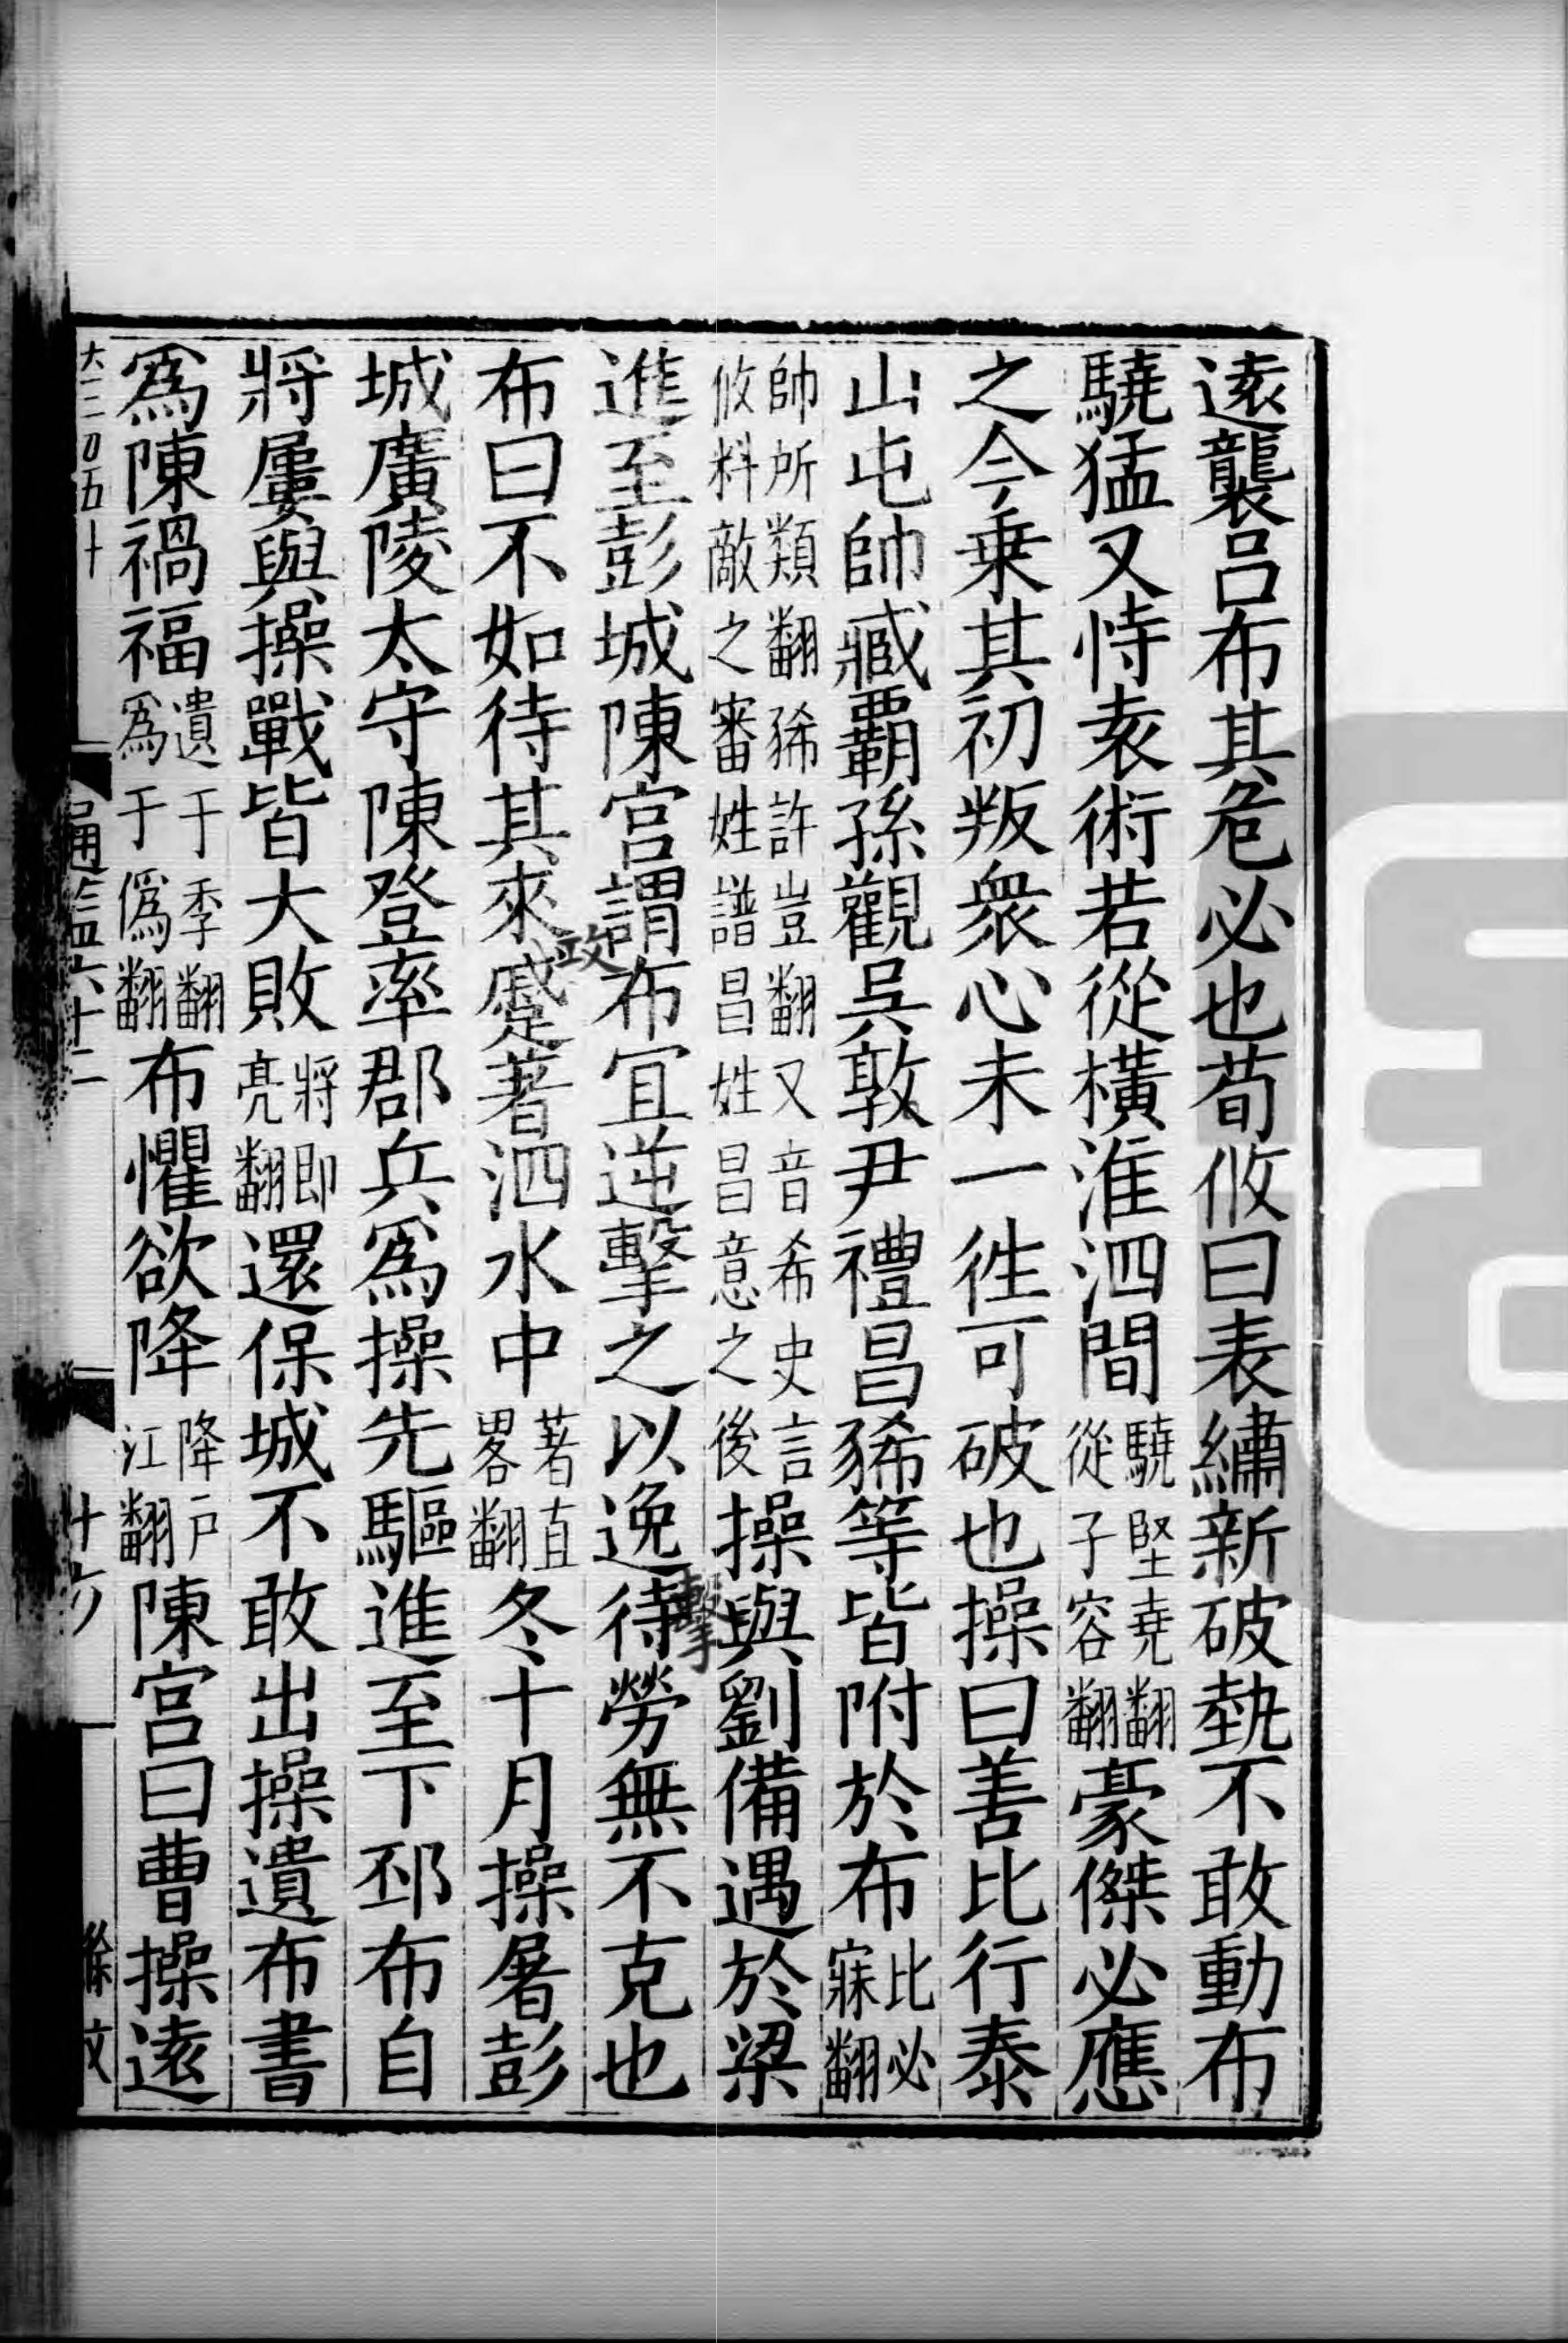 逺襲吕布其危必也荀攸曰表繡新破埶不敢動布
驍猛又恃袁術若從橫淮泗間驍堅堯翻從子容翻豪傑必應
之今乗其初叛衆心未一徃可破也操曰善比行泰
山屯帥臧霸孫觀吳敦尹禮昌豨等皆附於布比必寐翻
帥所類翻豨許豈翻又音希史言攸料敵之審姓譜昌姓昌意之後操與劉備遇於梁
進至彭城陳宫謂布宜逆擊之以逸待勞無不克也
布曰不如待其來蹙著泗水中著直畧翻冬十月操屠彭
城廣陵太守陳登率郡兵爲操先驅進至下邳布自
將屢與操戰皆大敗將即亮翻還保城不敢出操遺布書
爲陳禍福遺于季翻爲于僞翻布懼欲降降戸江翻陳宫曰曹操逺
通鑑六十二
十六
徐文
攻
擊